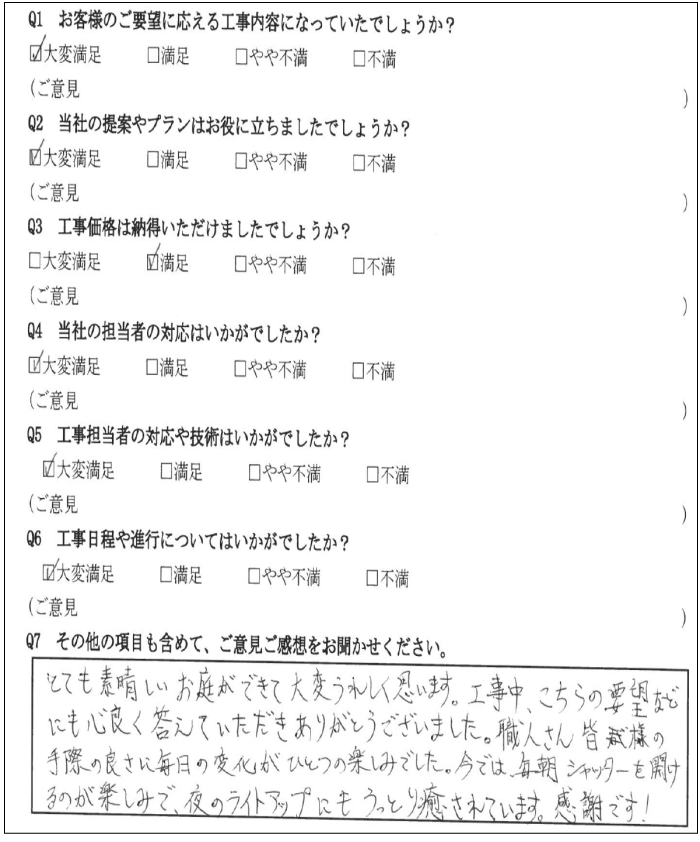 Q1 お客様のご要望に応える工事内容になっていたでしょうか?
☑大変満足 □満足 □やや不満 □不満
(ご意見 )
Q2 当社の提案やプランはお役に立ちましたでしょうか?
☑大変満足 □満足 □やや不満 □不満
(ご意見 )
Q3 工事価格は納得いただけましたでしょうか?
□大変満足 ☑満足 □やや不満 □不満
(ご意見 )
Q4 当社の担当者の対応はいかがでしたか?
☑大変満足 □満足 □やや不満 □不満
(ご意見 )
Q5 工事担当者の対応や技術はいかがでしたか?
☑大変満足 □満足 □やや不満 □不満
(ご意見 )
Q6 工事日程や進行についてはいかがでしたか?
☑大変満足 □満足 □やや不満 □不満
(ご意見 )
Q7 その他の項目も含めて、ご意見ご感想をお聞かせください。
とても素晴しいお庭ができて大変うれしく思います。工事中、こちらの要望など
にも心良く答えていただきありがとうございました。職人さん皆様の
手際の良さに毎日の変化がひとつの楽しみでした。今では、毎朝シャッターを開け
るのが楽しみで、夜のライトアップにもうっとり癒されています。感謝です!